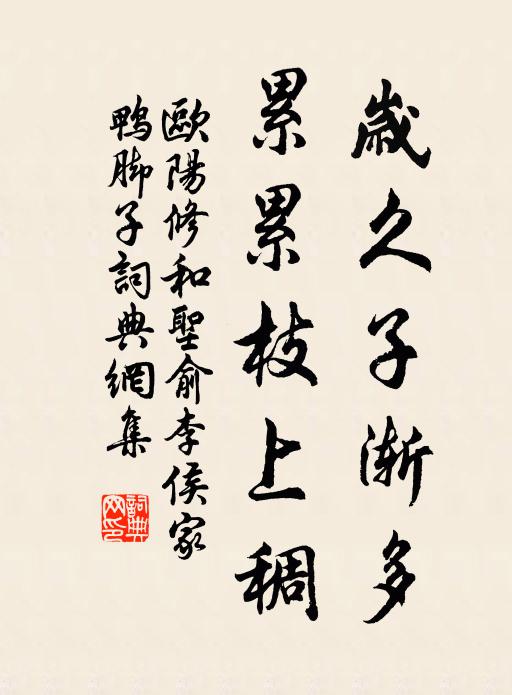 歲久子漸多
累累枝上稠
歐陽修和聖俞李侯家
鴨脚子詞典網集
詞典
網印